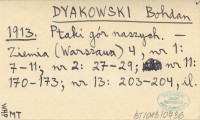 DYAKOWSKI Bohdan
1913. Ptaki gór naszych. —
Ziemia (Warszawa) 4, nr 1:
7-11; nr 2: 27-29; nr 11:
170-173; nr 13: 203-204, il.
MT